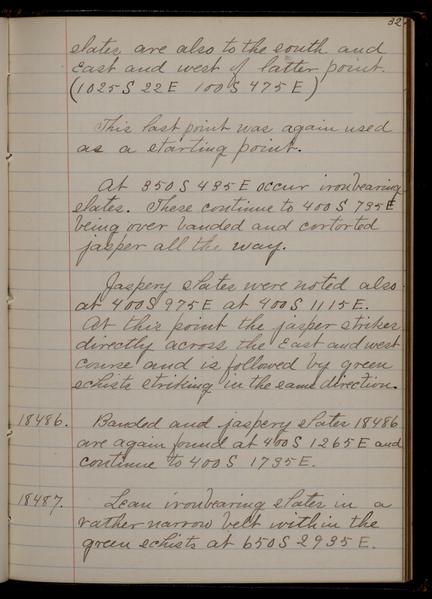 32
slates are also to the south and
East and west of latter point.
(1025 S 22 E 100 S 475 E)
This last point was again used
as a starting point.
At 350 S 435 E occur ironbearing
slates. These continue to 400 S 735 E
being over banded and contorted
jasper all the way.
Jaspery slates were noted also
at 400 S 975 E at 400 S 1115 E.
At this point the jasper strikes
directly across the East and west
course and is followed by green
schists striking in the same direction.
18486. Banded and jaspery slates 18486
are again found at 400 S 1265 E and
continue to 400 S 1735 E.
18487. Lean ironbearing slates in a
rather narrow belt within the
green schists at 650 S 2935 E.